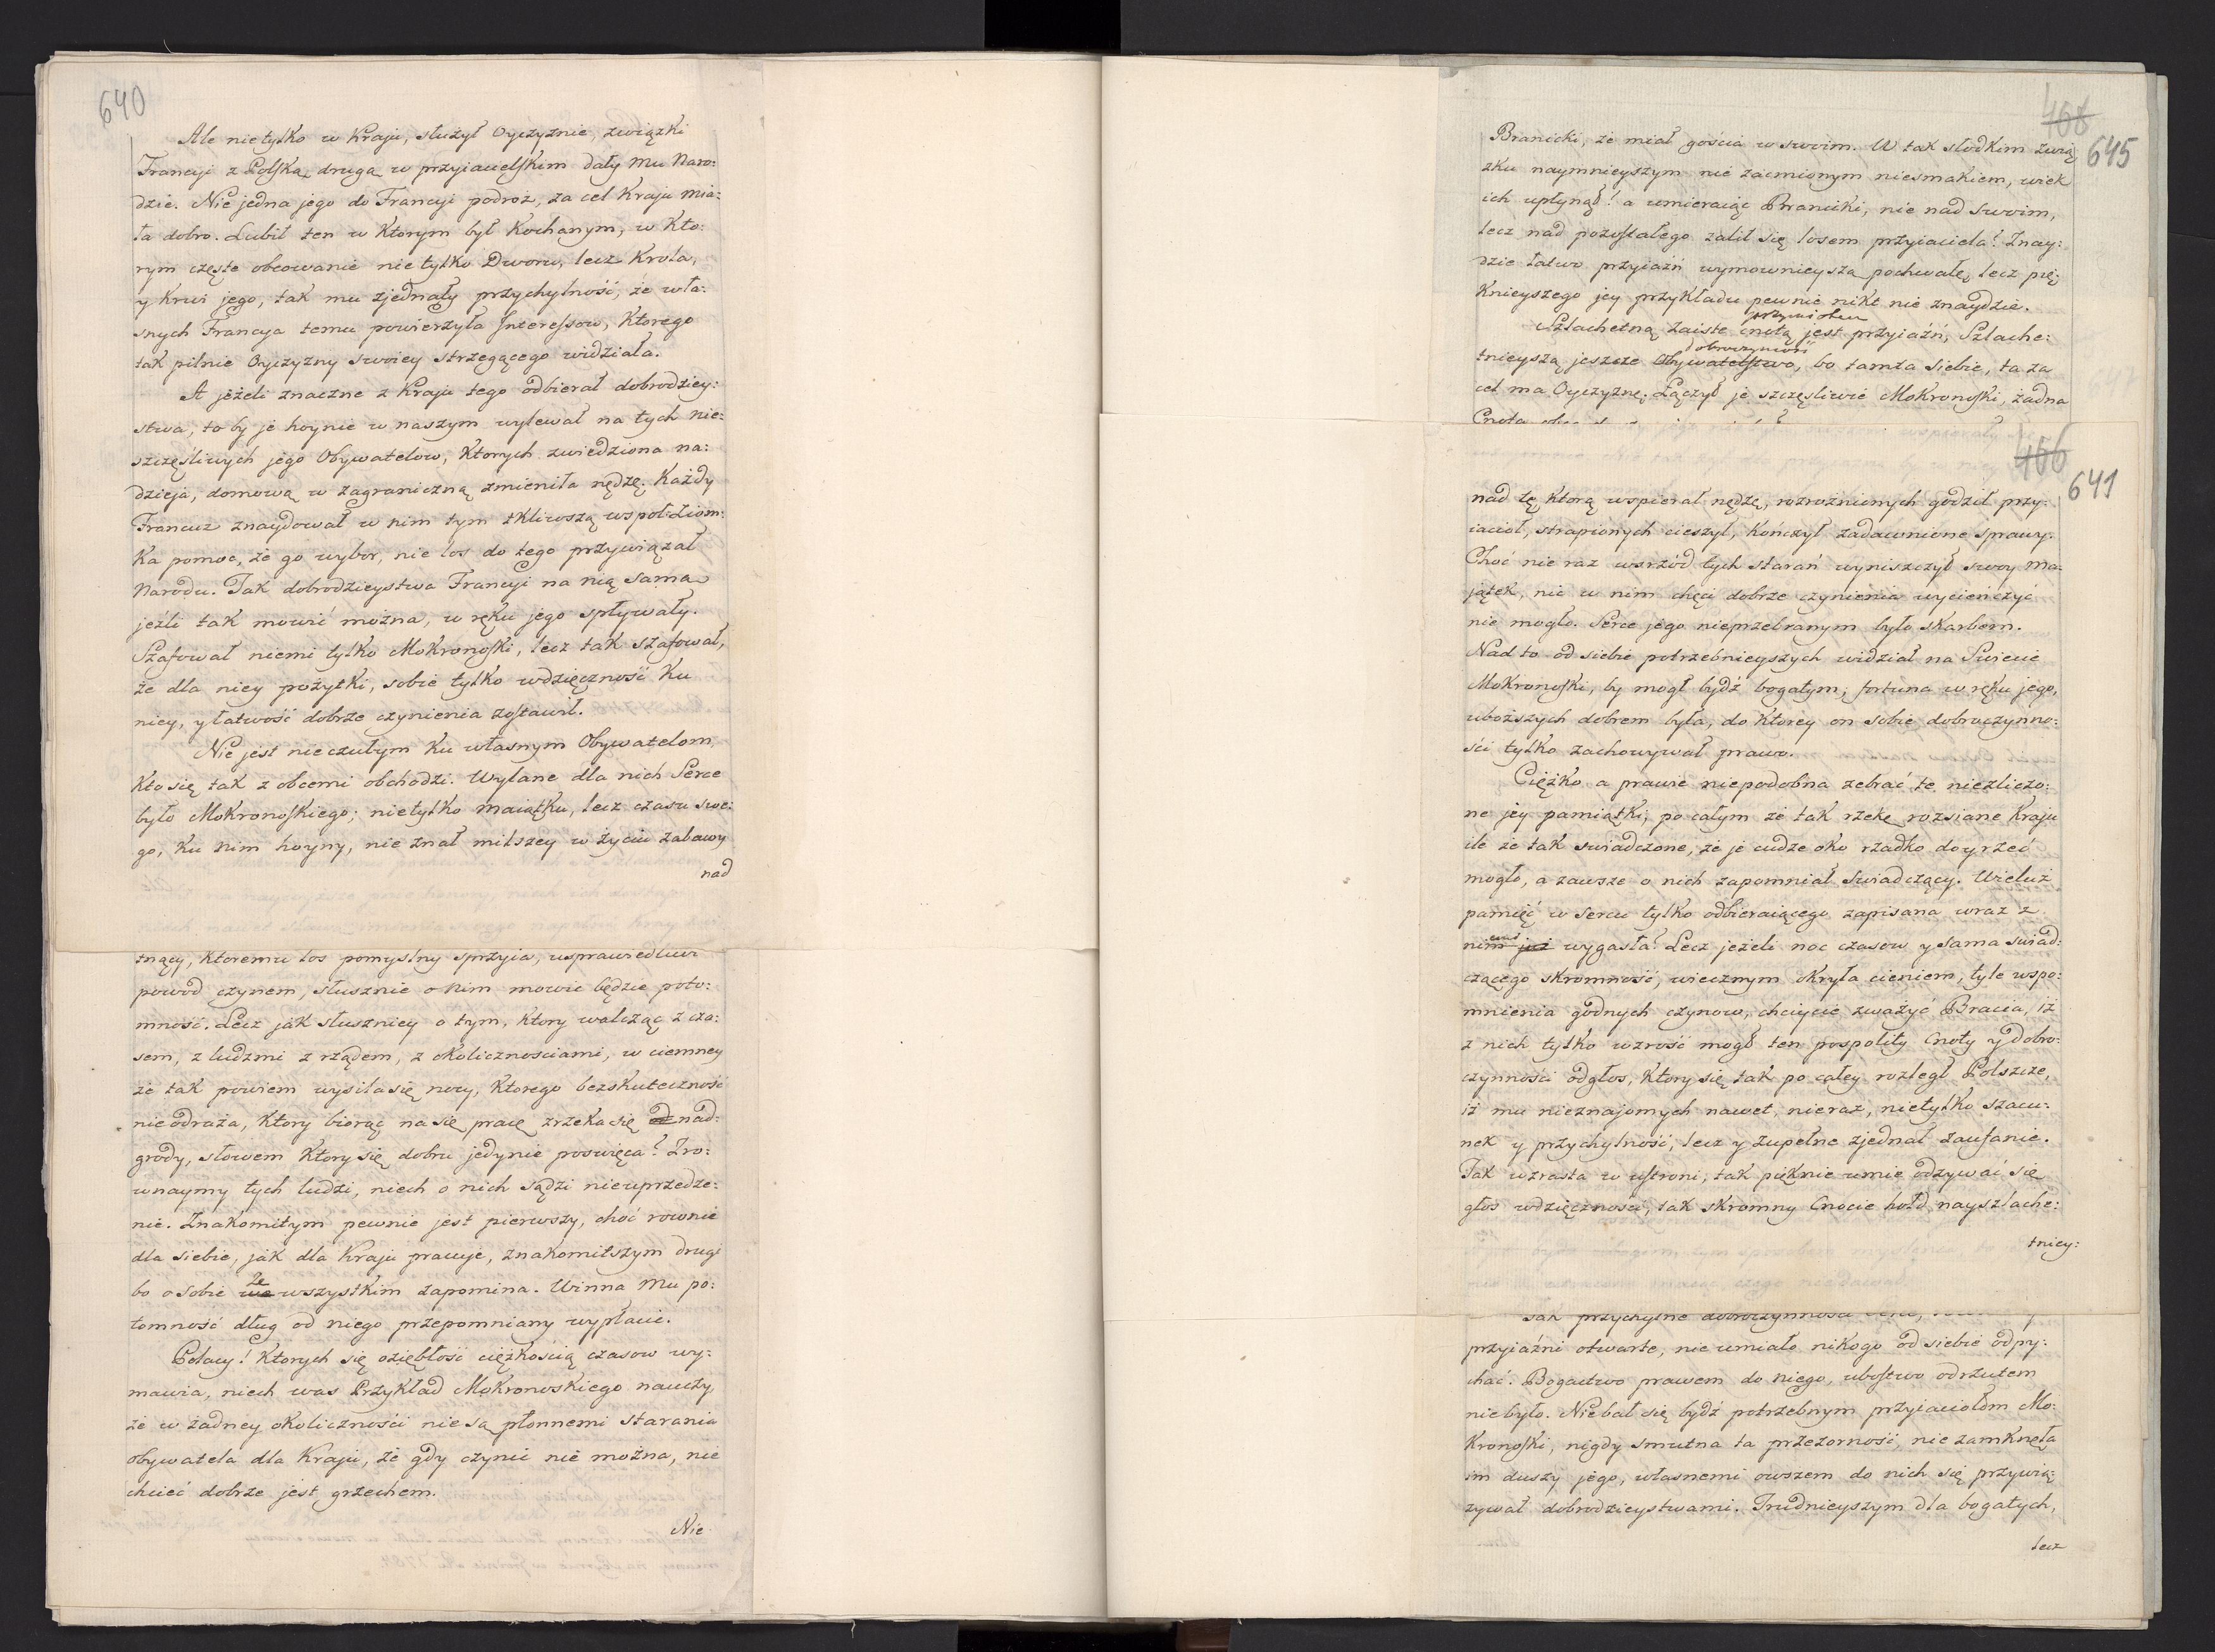 640
Ale nietylko w Kraju, służył Oyczyznie, związki
Francyi z Polską, drugą w przyjacielskim dały mu Naro:
dzie. Nie jedna jego do Francyi podroż, za cel Kraju mia:
ła dobro. Lubił ten w Ktorym był Kochanym, w Kto:
rym częste obcowanie nietylko Dworu, lecz Krola,
y Krwi jego, tak mu zjednały przychylność, że wła:
snych Francya temu powierzyła Interessow, Ktorego
tak pilnie Oyczyzny swoiey strzegącego widziała.
A jeżeli znaczne z Kraju tego odbierał dobrodziey:
stwa, to by je hoynie w naszym wylewał na tych nie:
szczęsliwych jego Obywatelow, Ktorych zwiedziona na:
dzieja, domową w zagraniczną zmieniła nędzę. Każdy
Francuz znaydował w nim tym tkliwszą wspoł-Ziom:
Ka pomoc, że go wybor, nie los do tego przywiązał
Narodu. Tak dobrodzieystwa Francyi na nią samą
jeżli tak mowić można, w ręku jego spływały.
Szafował niemi tylko Mokronoski, lecz tak szafował,
że dla niey pożytki, sobie tylko wdzięczność Ku
niey, y łatwość dobrze czynienia zostawił.
Nie jest nieczułym Ku własnym Obywatelom,
Kto się tak z obcemi obchodzi. Wylane dla nich Serce
było Mokronoskiego; nietylko maiątku, lecz czasu swe:
go, Ku nim hoyny, nie znał milszey w życiu zabawy
nad
tnący, Ktoremu los pomyslny sprzyia, usprawiedliwi
powod czynem, słusznie o nim mowić będzie poto:
mność. Lecz jak słuszniey o tym, Ktory walcząc z cza:
sem, z ludzmi z rządem, z okolicznosciami, w ciemney
że tak powiem wysila się nocy, Ktorego bezskuteczność
nie odraża, Ktory biorąc na się pracę zrzeka się od nad:
grody, słowem Ktory się dobru jedynie poswięca? Zro:
wnaymy tych ludzi, niech o nich sądzi nieuprzedze:
nie. Znakomitym pewnie jest pierwszy, choć rownie
dla siebie, jak dla Kraju pracuje, znakomitszym drugi
bo o sobie we ze wszystkim zapomina. Winna Mu po:
tomność dług od niego przepomniany wypłacić.
Polacy! Ktorych się oziębłość ciężkością czasow wy:
mawia, niech was Przykład Mokronowskiego nauczy,
że w żadney okoliczności nie są płonnemi starania
obywatela dla Kraju, że gdy czynić nie można, nie
chcieć dobrze jest grzechem.
Nie
468
645
Branicki, że miał gościa w swoim. W tak słodkim zwią
zku naymnieyszym nie zacmionym niesmakiem, wiek
ich upłynął! a umieraiąc Branicki, nie nad swoim,
lecz nad pozostałego zalił się losem przyiaciela! Znay:
dzie łatwo przyiaźń wymownieyszą pochwałę, lecz pię:
Knieyszego jey przykładu pewnie nikt nie znaydzie.
przymiotem
Szlachetną zaiste cnotą jest przyiaźń, Szlache:
dobroczynność
tnieyszą jeszcze Obywatelstwo, bo tamta siebie, ta za
cel ma Oyczyznę. Łączył je szczęsliwie Mokronoski, żadna
Cnota
466
641
nad tę, Ktorą wspierał nędzę, rozrożnionych godził przy:
iacioł, strapionych cieszył, Kończył zadawnione sprawy.
Choć nie raz wsrzód tych starań wyniszczył swoy ma:
jątek, nic w nim chęci dobrze czynienia wycieńczyć
nie mogło. Serce jego nieprzebranym było skarbem.
Nad to od siebie potrzebnieyszych widział na Swiecie
Mokronoski, by mogł bydź bogatym, fortuna w ręku jego,
uboższych dobrem była, do Ktorey on sobie dobroczynno:
ści tylko zachowywał prawo.
Ciężko a prawie niepodobna zebrać te niezliczo:
ne jey pamiątki, po całym że tak rzekę rozsiane Kraju
ile że tak swiadczone, że je cudze oko rzadko doyrzeć
mogło, a zawsze o nich zapomniał Swiadczący. Wieluż
pamięć w sercu tylko odbieraiącego zapisana wraz z
nim już wygasła? Lecz jeżeli noc czasow y sama swiad:
czącego skromność, wiecznym okryła cieniem, tyle wspo:
mnienia godnych czynow, chcieycie zważyć Bracia, iż
z nich tylko wzrość mogł ten pospolity Cnoty y dobro:
czynności odgłos, Ktory się tak po całey rozległ Polszcze,
iż mu nieznajomych nawet, nieraz, nietylko szacu:
nek y przychylność, lecz y zupełne zjednał zaufanie.
Tak wzrasta w ustroni, tak pięknie umie odzywać się
głos wdzięczności, tak skromny Cnocie hołd nayszlache:
tniey:
Tak przychylne dobroczynności
przyiaźni otwarte, nie umiało nikogo od siebie odpy:
chać. Bogactwo prawem do niego, ubostwo odrzutem
nie było. Nie bał się bydź potrzebnym przyiaciołom Mo:
Kronoski, nigdy smutna ta przezorność, nie zamknęła
im duszy jego, własnemi owszem do nich się przywią:
zywał dobrodzieystwami. Trudnieyszym dla bogatych,
lecz